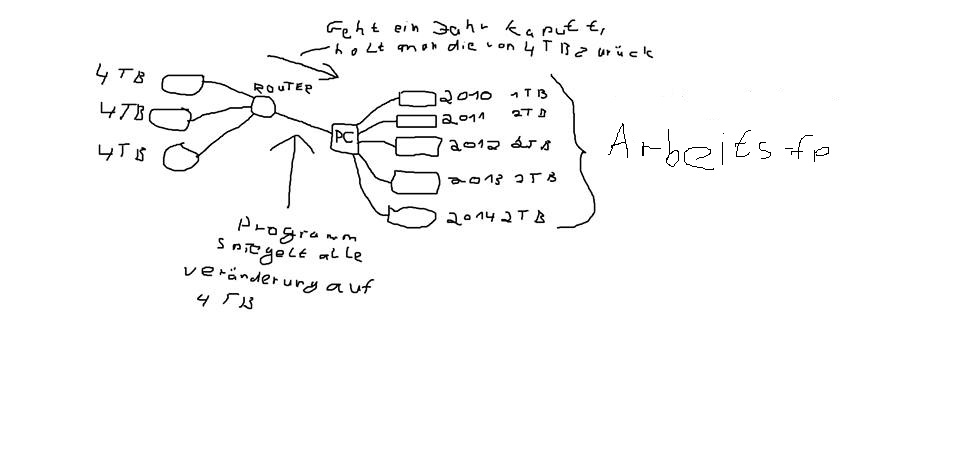 Geht ein Jahr kaputt,
holt man die von 4 TB zurück
4 TB
4TB
4TB
ROUTER
PC
2010 1TB
2011 2TB
2012 2TB
2013 2TB
2014 2TB
Arbeitsfp
Programm
spiegelt alle
veränderung auf
4 TB